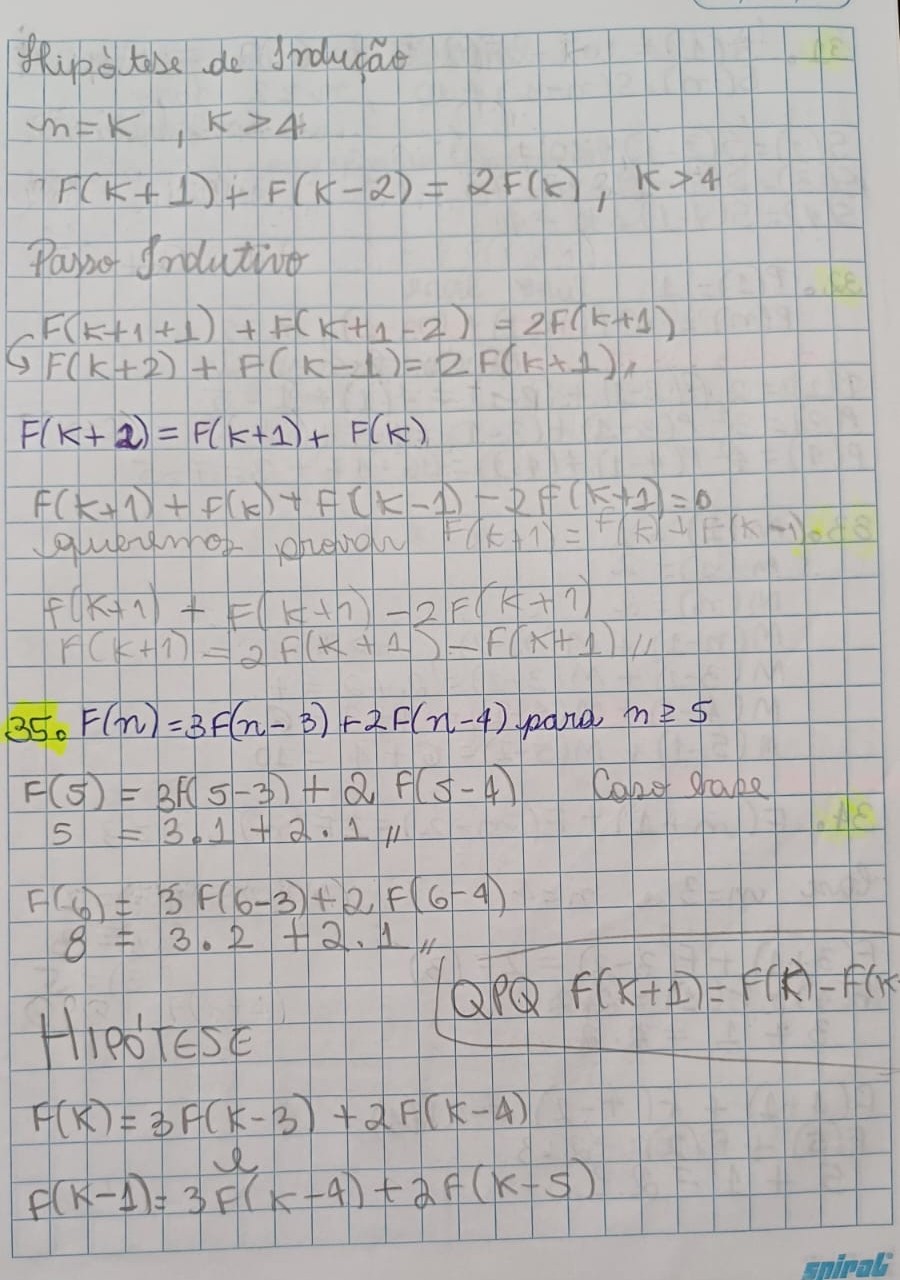 Hipótese de Indução
n = K , K > 4
F(K+1) + F(K-2) = 2F(K), K > 4
Passo Indutivo
F(K+1+1) + F(K+1-2) = 2F(K+1)
F(K+2) + F(K-1) = 2F(K+1)//
F(K+2) = F(K+1) + F(K)
F(K+1) + F(K) + F(K-1) - 2F(K+1) = 0
queremos provar F(K+1) = F(K) + F(K-1)
F(K+1) + F(K+1) - 2F(K+1)
F(K+1) = 2F(K+1) - F(K+1)//
35. F(n) = 3F(n-3) + 2F(n-4) para n ≥ 5
F(5) = 3F(5-3) + 2F(5-4) Caso base
5 = 3.1 + 2.1//
F(6) = 3F(6-3) + 2F(6-4)
8 = 3.2 + 2.1//
QPQ F(K+1) = F(K) - F(K
HIPÓTESE
F(K) = 3F(K-3) + 2F(K-4)
e
F(K-1) = 3F(K-4) + 2F(K-5)
spiral